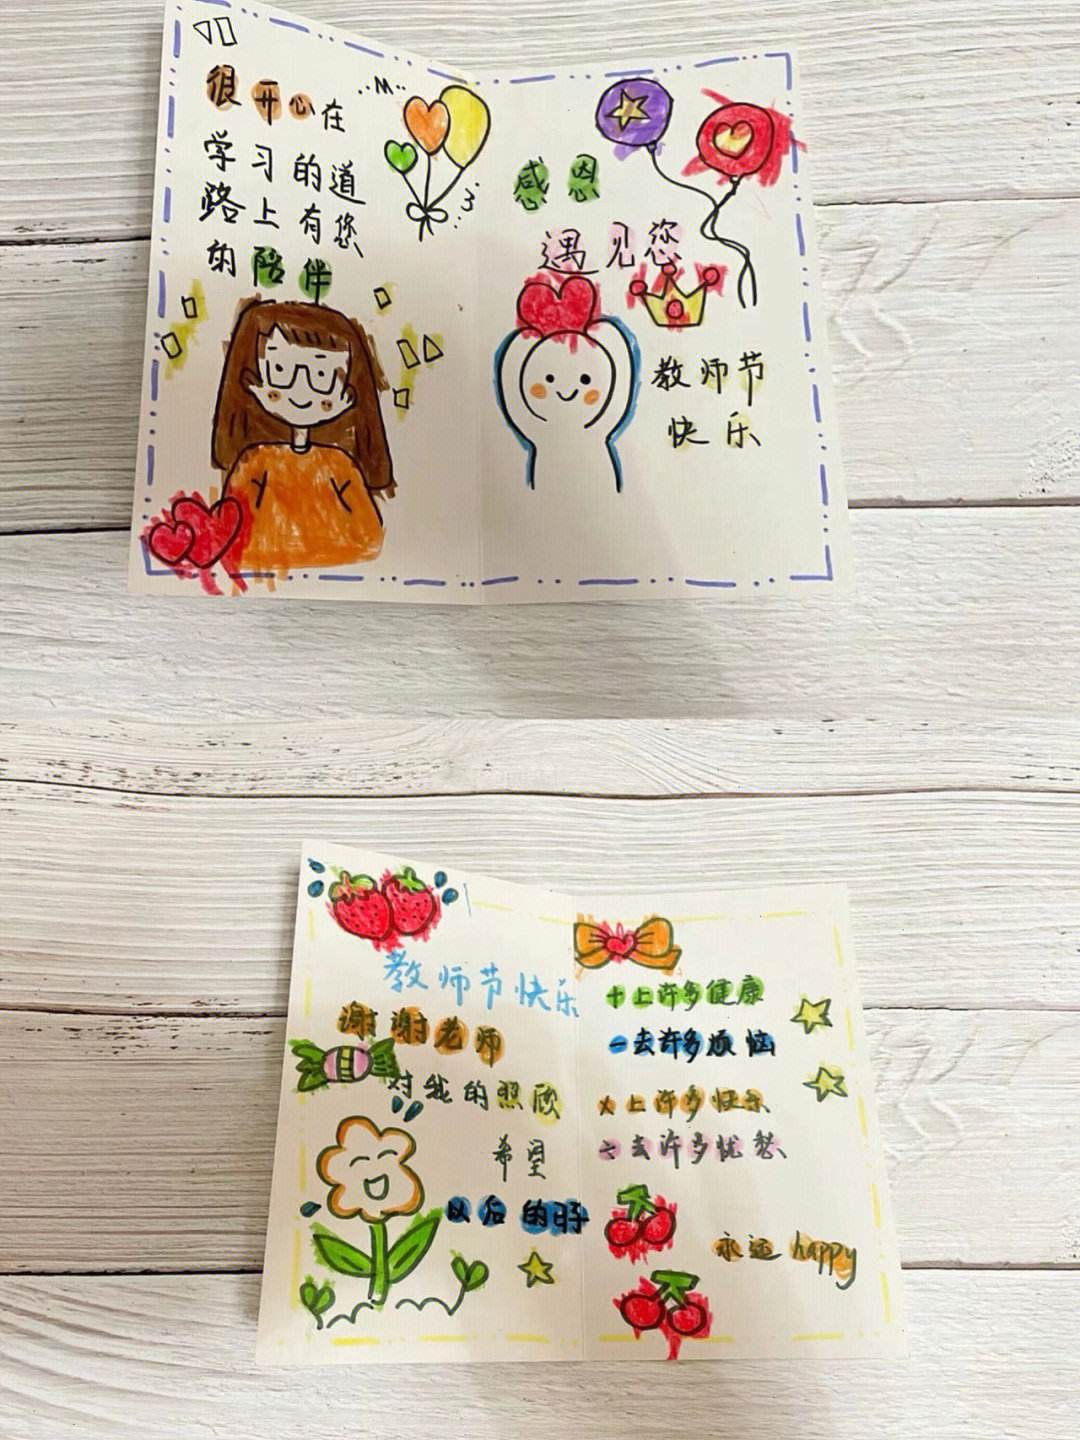 很开心在
学习的道
路上有您
的陪伴
感恩
遇见您
教师节
快乐
教师节快乐
谢谢老师
对我的照顾
希望
以后的日子
十上许多健康
一去许多烦恼
乂上许多快乐
去许多忧愁
永远happy